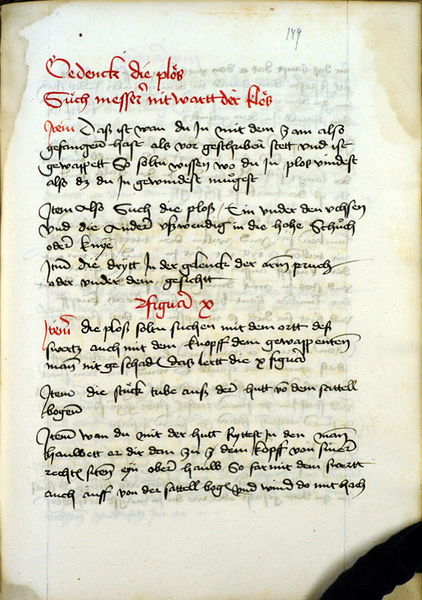 149
Gedenck die plös
Süch messer nit wartt der klös
Item Daß ist wan du In mit dem zam also
gefangen hast als vor geschriben stett vnd ist
gewappett So soltu wissen wo du In plos vindest
also dz du In gewindest mügest
Item Also Such die ploß Ein vnder den vchsen
vnd die Ander vßwendig in die hohe Schuch
oder knye
Item die drytt In der gelenck der arm pruch
oder vnder dem gesichtt
figura x
Item die plös soltu suchen mit dem ortt deß
swertz auch mit dem knopff dem gewappenten
man nit geschad daß lertt die x figur
Item die stück tube auß der hutt vo dem sattell
bogen
Item wan du mit der hutt Ryttest in den man
hawbett er dir dem zu dem kopff von siner
recht sitten eyn ober hawb So far mit dem swertt
auch auff von der sattell bog vnd wind do mit hoch